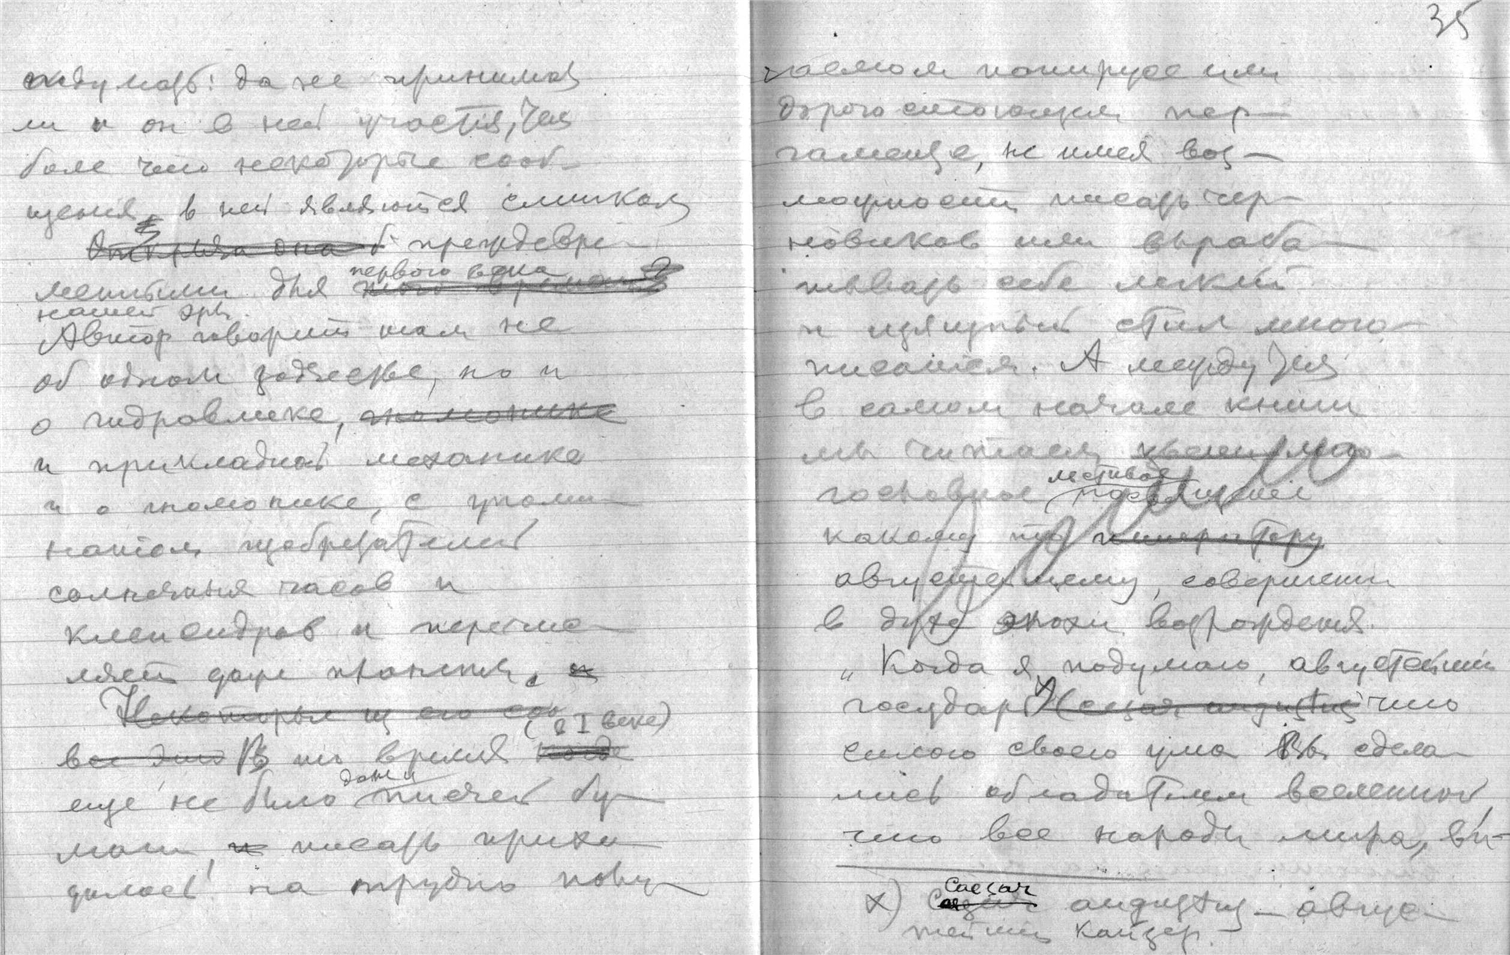 думать! да же принима
ли и он в ней участія, тем
боле что некоторые сооб-
щения в ней являются слишком
преждевре-
первого века
менными для
нашей эры.
Автор говорит там не
об одном зодчестве, но и
о гидравлике, гномонике
и прикладной механике
и о гномонике, с упоми-
наніем изобретателей
солнечных часов и
клепсидров и перечис-
ляет даже
Некоторые из его
(в I веке)
все это В то время когда
даже
еще не было писчей бу-
маги, и писать прихо-
дилось на трудно полу-
35
чаемом папирусе или
дорого стоющем пер-
гаменте, не имея воз-
можности писать чер-
новиков или выраба-
тывать себе легкий
и изящный стил много-
писания. А между тем
в самом начале книги
мы читаем
льстивое
посвящение
какому то императору
августейшему, совершенно
в духе эпохи возрождения.
„Когда я подумаю, августейший
государь x) что
силою своего ума Вы сдела-
лись обладателем вселенной,
что все народы мира, вы-
Caesar
x) augustus – авгус-
тейший Кайзер.